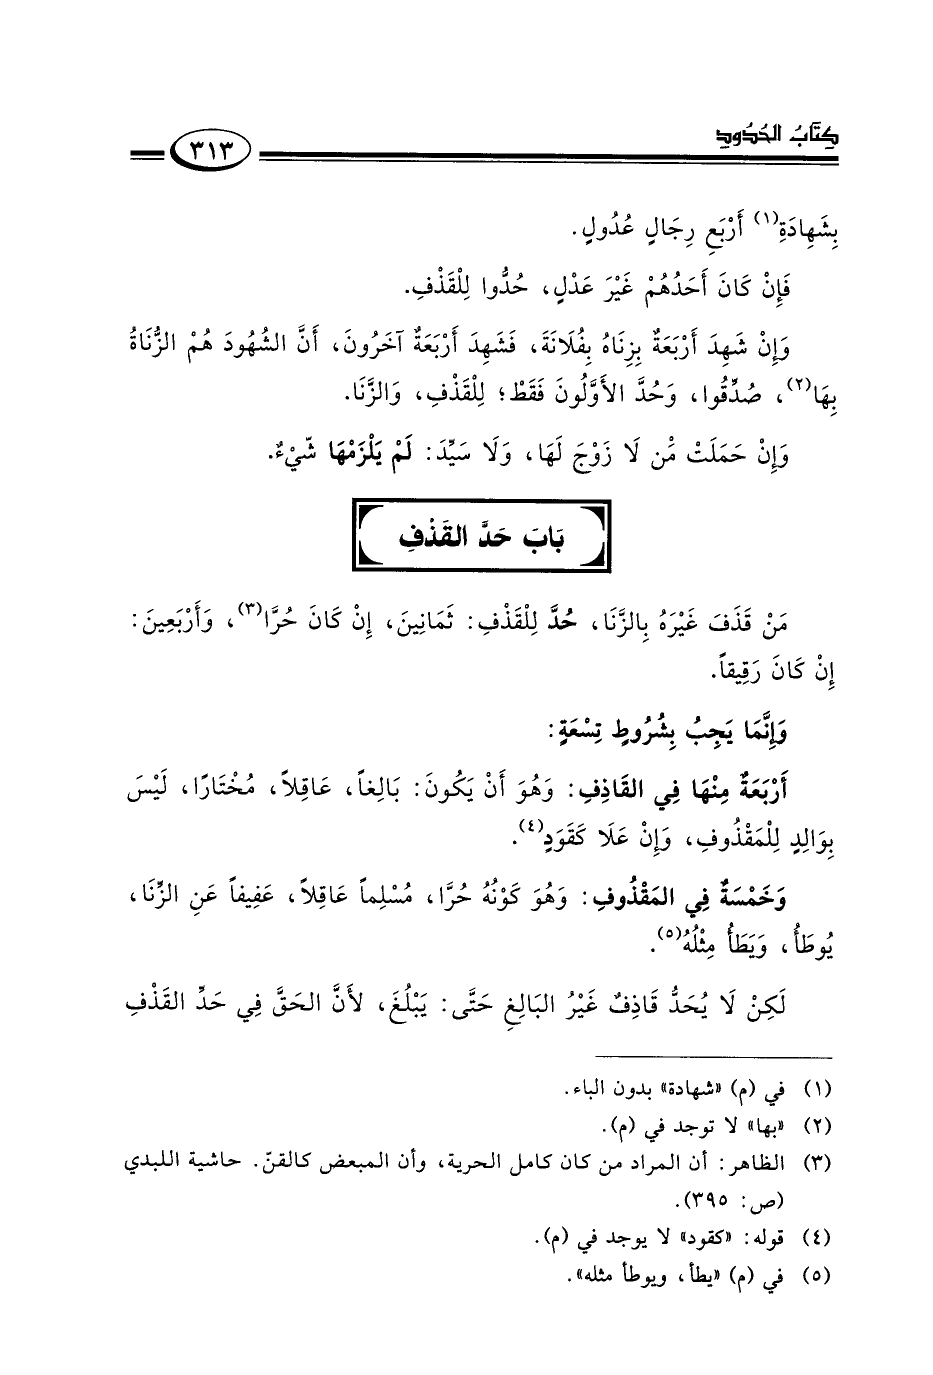 كِتَابُ الحُدُودِ
٣١٣
بِشَهِادَةِ(١) أَرْبَعِ رِجَالٍ عُدُولٍ.
فَإِنْ كَانَ أَحَدُهُمْ غَيْرَ عَدْلٍ، حُدُّوا لِلْقَذْفِ.
وَإِنْ شَهِدَ أَرْبَعَةٌ بِزِنَاهُ بِفُلَانَةَ، فَشَهِدَ أَرْبَعَةٌ آخَرُونَ، أَنَّ الشُهُودَ هُمْ الزُّنَاةُ
بِهَا(٢)، صُدِّقُوا، وَحُدَّ الأَوَّلُونَ فَقَطْ؛ لِلْقَذْفِ، وَالزَّنَا.
وَإِنْ حَمَلَتْ مَّن لَا زَوْجَ لَهَا، وَلَا سَيِّدَ: لَمْ يَلْزَمْهَا شّيْءٌ.
بَابَ حَدَّ القَذْفِ
مَنْ قَذَفَ غَيْرَهُ بِالزَّنَا، حُدَّ لِلْقَذْفِ: ثَمَانِينَ، إِنْ كَانَ حُرَّا(٣)، وَأَرْبَعِينَ:
إِنْ كَانَ رَقِيقاً.
وَإِنَّمَا يَجِبُ بِشُرُوطٍ تِسْعَةٍ:
أَرْبَعَةٌ مِنْهَا فِي القَاذِفِ: وَهُوَ أَنْ يَكُونَ: بَالِغاً، عَاقِلاً، مُخْتَارًا، لَيْسَ
بِوَالِدٍ لِلْمَقْذُوفِ، وَإِنْ عَلَا كَقَوَدٍ(٤).
وَخَمْسَةٌ فِي المَقْذُوفِ: وَهُوَ كَوْنُهُ حُرَّا، مُسْلِماً عَاقِلاً، عَفِيفاً عَنِ الزِّنَا،
يُوطَأُ، وَيَطَأُ مِثْلُهُ(٥).
لَكِنْ لَا يُحَدُّ قَاذِفٌ غَيْرُ البَالِغِ حَتَّى: يَبْلُغَ، لأَنَّ الحَقَّ فِي حَدِّ القَذْفِ
(١) في (م) «شهادة» بدون الباء.
(٢) «بها» لا توجد في (م).
(٣) الظاهر: أن المراد من كان كامل الحرية، وأن المبعض كالقنّ. حاشية اللبدي
(ص: ٣٩٥).
(٤) قوله: «كقود» لا يوجد في (م).
(٥) في (م) «يطأ، ويوطأ مثله».